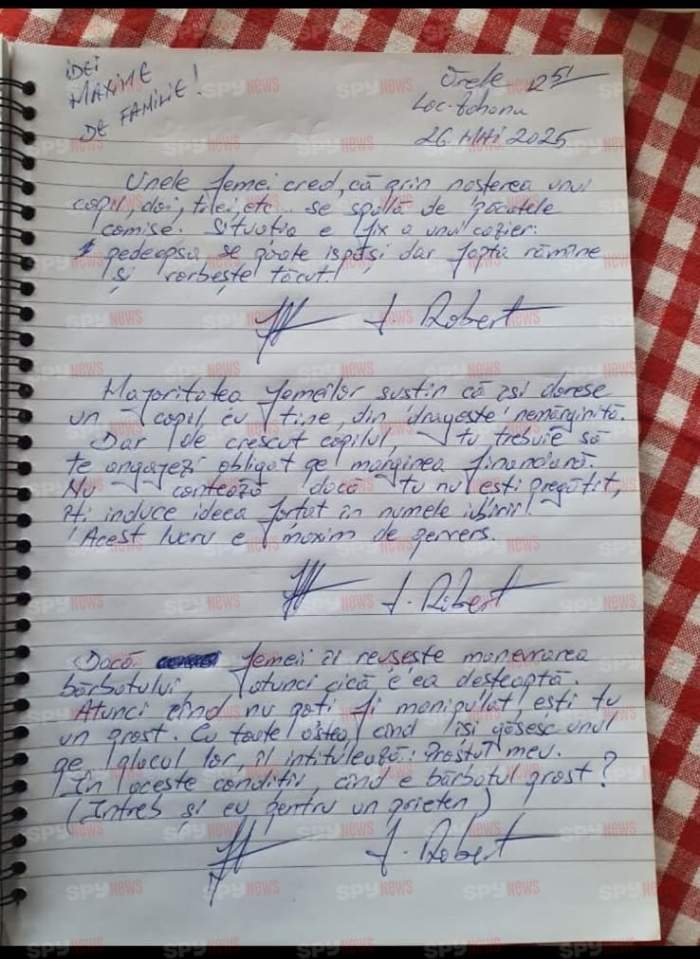 IDEI
MAXIME
DE FAMILIE!
Orele 12 51
Loc-
26 MAI 2025
Unele femei cred, că prin nașterea unui
copil, doi, trei, etc.. se spală de păcatele
comise. Situația e fix a unui cazier:
pedeapsa se poate ispăși dar fapta rămîne
și vorbește tăcut!
J. Robert
Majoritatea femeilor susțin că își doresc
un copil cu tine, din dragoste nemărginită.
Dar de crescut copilul, tu trebuie să
te angajezi obligat pe marginea financiară.
Nu contează dacă tu nu ești pregătit,
îți induce ideea forțat în numele iubirii!
Acest lucru e maxim de pervers.
J. Ribert
Dacă femeii îi reușește manevrarea
bărbatului, atunci cică e ea deșteaptă.
Atunci cînd nu poți fi manipulat, ești tu
un prost. Cu toate astea, cînd își găsesc unul
pe placul lor, îl intitulează: Prostul meu.
În aceste condiții, cînd e bărbatul prost?
(Întreb și eu pentru un prieten)
J. Robert
SPYNEWS